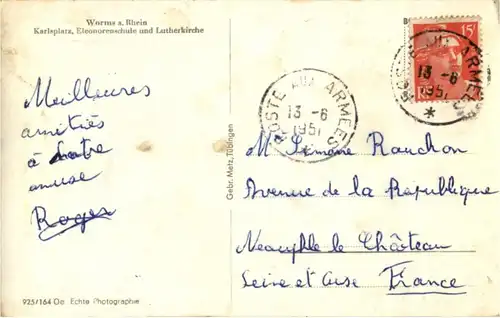 Worms a. Rhein
Karlsplatz, Eleonorenschule und Lutherkirche
15F
POSTE AUX ARMEES
13 -6
1951
POSTE AUX ARMEES
13 -6
1951
Meilleures
amitiés
à
Roger
M. Simone Rauchon
Avenue de la République
Neauphle le Château
Seine et Oise France
Gebr. Metz, Tübingen
925/164 Oe Echte Photographie